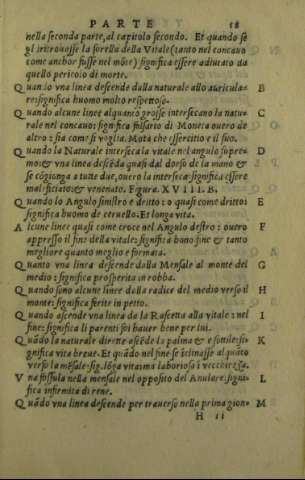 PARTE 58
nella seconda parte, al capitolo secondo. Et quando se
gl'intrauosse la sorella della Vitale (tanto nel concauo
come anchor fusse nel mōte) significa essere adiutato da
quello pericolo di morte.
Quanto vna linea descende dalla naturale allo auricula- B
re: significa huomo molto rispettoso.
Quando alcune linee alquanto grosse intersecano la natu- C
rale nel concauo: significa falsario di Moneta ouero de
altro: sia com si voglia. Mota che essercitio e il suo.
Quando la Naturale interseca la vitale nel angulo supre- D
mo: & vna linea descēda quasi dal dorso de la mano &
se cōgionga a tutte due, ouero la interseca: significa essere
maleficiato: & venenato. Figura. XVIIII. B.
Quando lo Angulo sinistro e dritto: o quasi come dritto: E
significa huomo de ceruello. Et longa vita.
Alcune linee quasi come croce nel Angulo destro: ouero F
appresso il fine della vitale: significa bono fine & tanto
megliore quanto meglio e formata.
Quanto vna linea descende dalla Mensale al monte del G
medio: significa prosperita in robba.
Quando sono alcune linee della radice del medio verso il H
monte: significa ferite in petto.
Quando ascende vna linea de la Rascetta alla vitale: nel I
fine: significa li parenti soi hauer bene per lui.
Quādo la naturale dirette ascēde la palma & e sottile: si- K
gnifica vita breue. Et quādo nel fine se iclinasse al quāto
verso la mēsale: sig. lōga vita: ma laboriosa i vecchiezza.
Vna fossula nella mensale nel opposito del Anulare: signi- L
fica infirmita di rene.
Quādo vna linea descende per trauerso nella prima gion- M
H ii